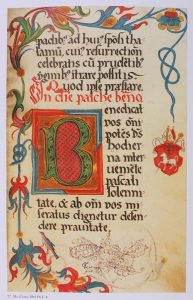 ad hui9 spōsi tha
lamū, cui9 resurrectionē
celebratis cū prudētib9
ītrare possitis.
Quod ipse prestare.
In die pasche bened
B
enedicat
vos om̄i
potēs d̄s
hodier
na inter
ueniēte
pascali
solenni
tate, & ab om̄i vos mi
seratus dignetur defen
dere prauitate,